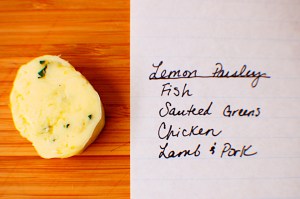 Lemon Parsley
Fish
Sauteed Greens
Chicken
Lamb & Pork